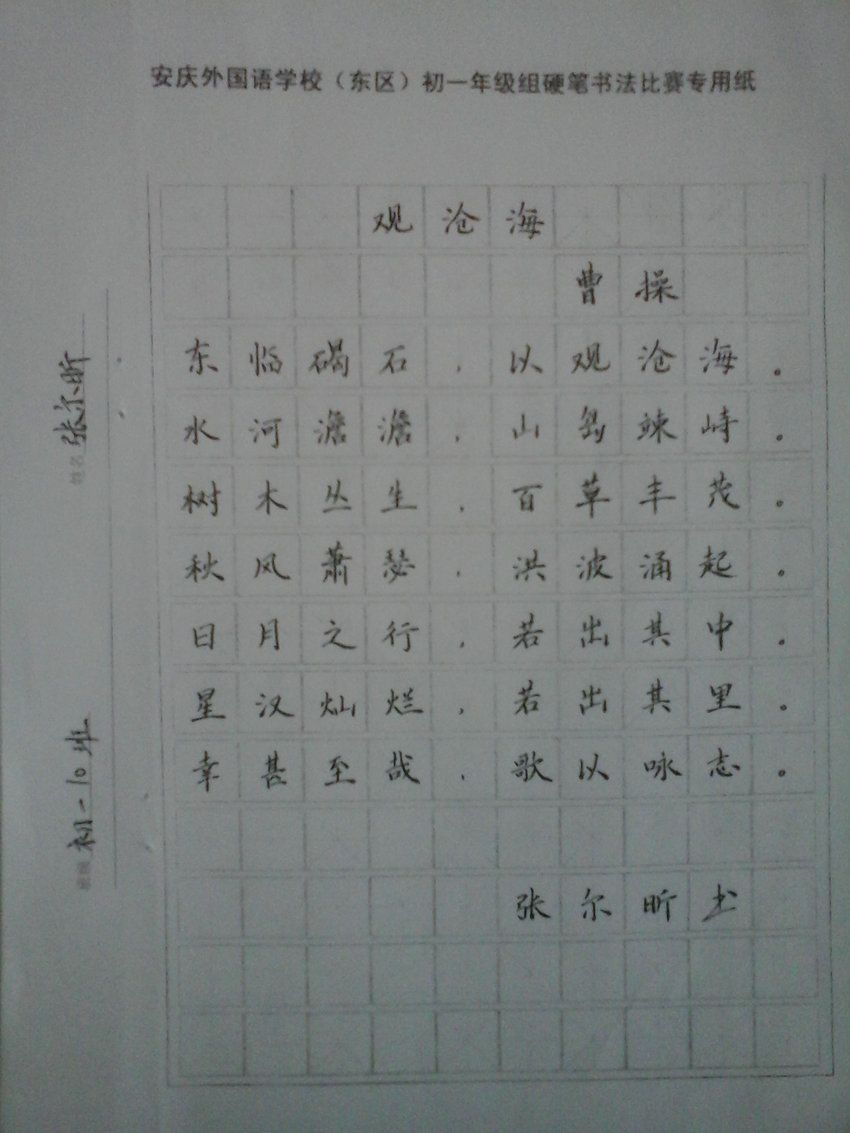 安庆外国语学校（东区）初一年级组硬笔书法比赛专用纸
观沧海
曹操
东临碣石，以观沧海。
水河澹澹，山岛竦峙。
树木丛生，百草丰茂。
秋风萧瑟，洪波涌起。
日月之行，若出其中。
星汉灿烂，若出其里。
幸甚至哉，歌以咏志。
张尔昕书
姓名 张尔昕
班级 初一10班